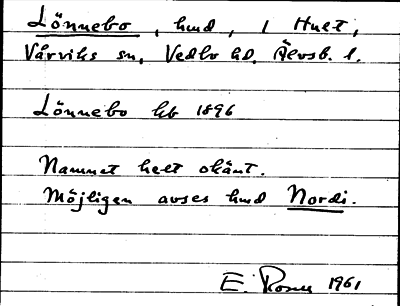 Lönnebo, hmd, 1 Huet,
Vårviks sn, Vedbo hd. Älvsb. l.
Lönnebo hb 1896
Namnet helt okänt.
Möjligen avses hmd Nordi.
E. 1961